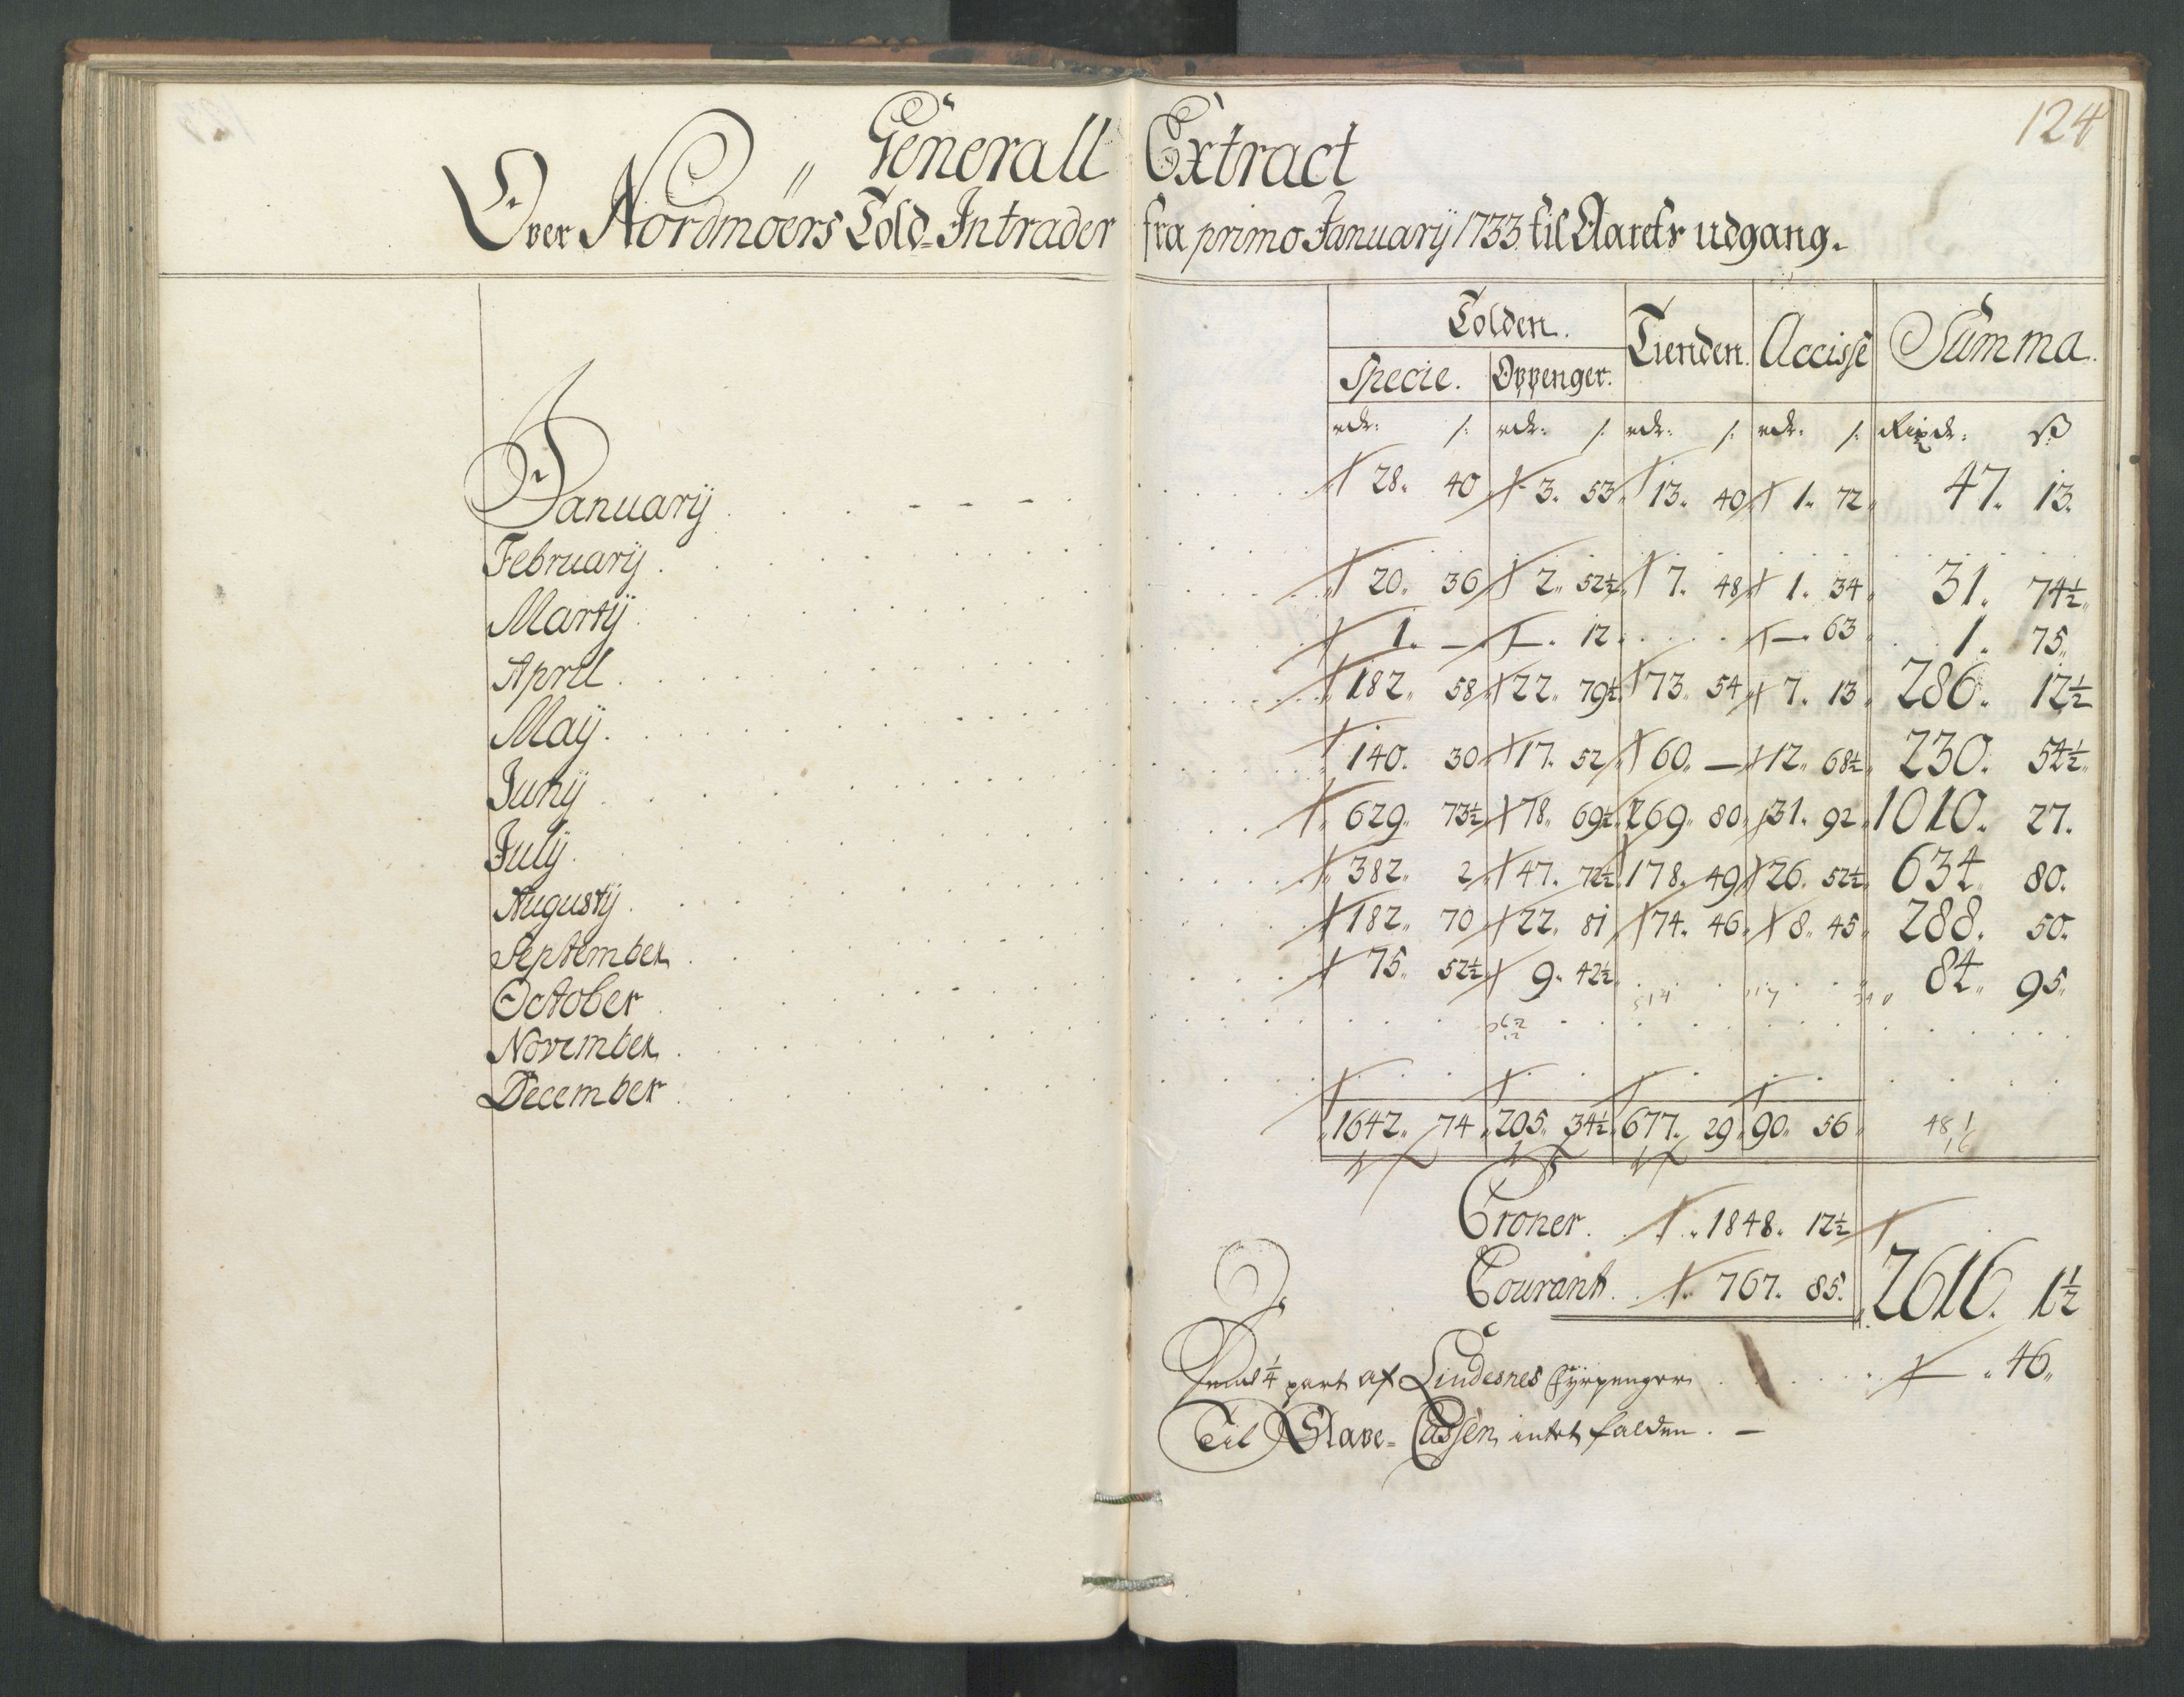 124
Generall Extract
Over Nordmøers Told-Intrader fra primo Januarij 1733 til Aarets udgang.
Tolden. Tienden. Accisse Summa.
Specie. Oppenger.
rdr: /: rdr: /: rdr: /: rdr: /: Rixdr: ß
Januarij 28. 40 3. 53 13. 40 1. 72 47. 13.
Februarij
Martij 20. 36 2. 52½ 7. 48 1. 34 31. 74½
April 1. — —. 12 —. 63 1. 75
Maij 182. 58 22. 79½ 73. 54 7. 13 286. 12½
Junij 140. 30 17. 52 60. — 12. 68½ 230. 54½
Julij 629. 73½ 78. 69½ 269. 80 31. 92 1010. 27.
Augustij 382. 2 47. 72½ 178. 49 26. 52½ 634. 80.
September 182. 70 22. 81 74. 46 8. 45 288. 50.
October 75. 52½ 9. 42½ 84. 95.
November
December
1642. 74 205. 34½ 677. 29 90. 56
Croner. 1848. 12½
Courant. 767. 85. 2616. 1½
¼ part af Lindesnes Fyrpenger — 46
Til Slave-Cassen intet falden. —